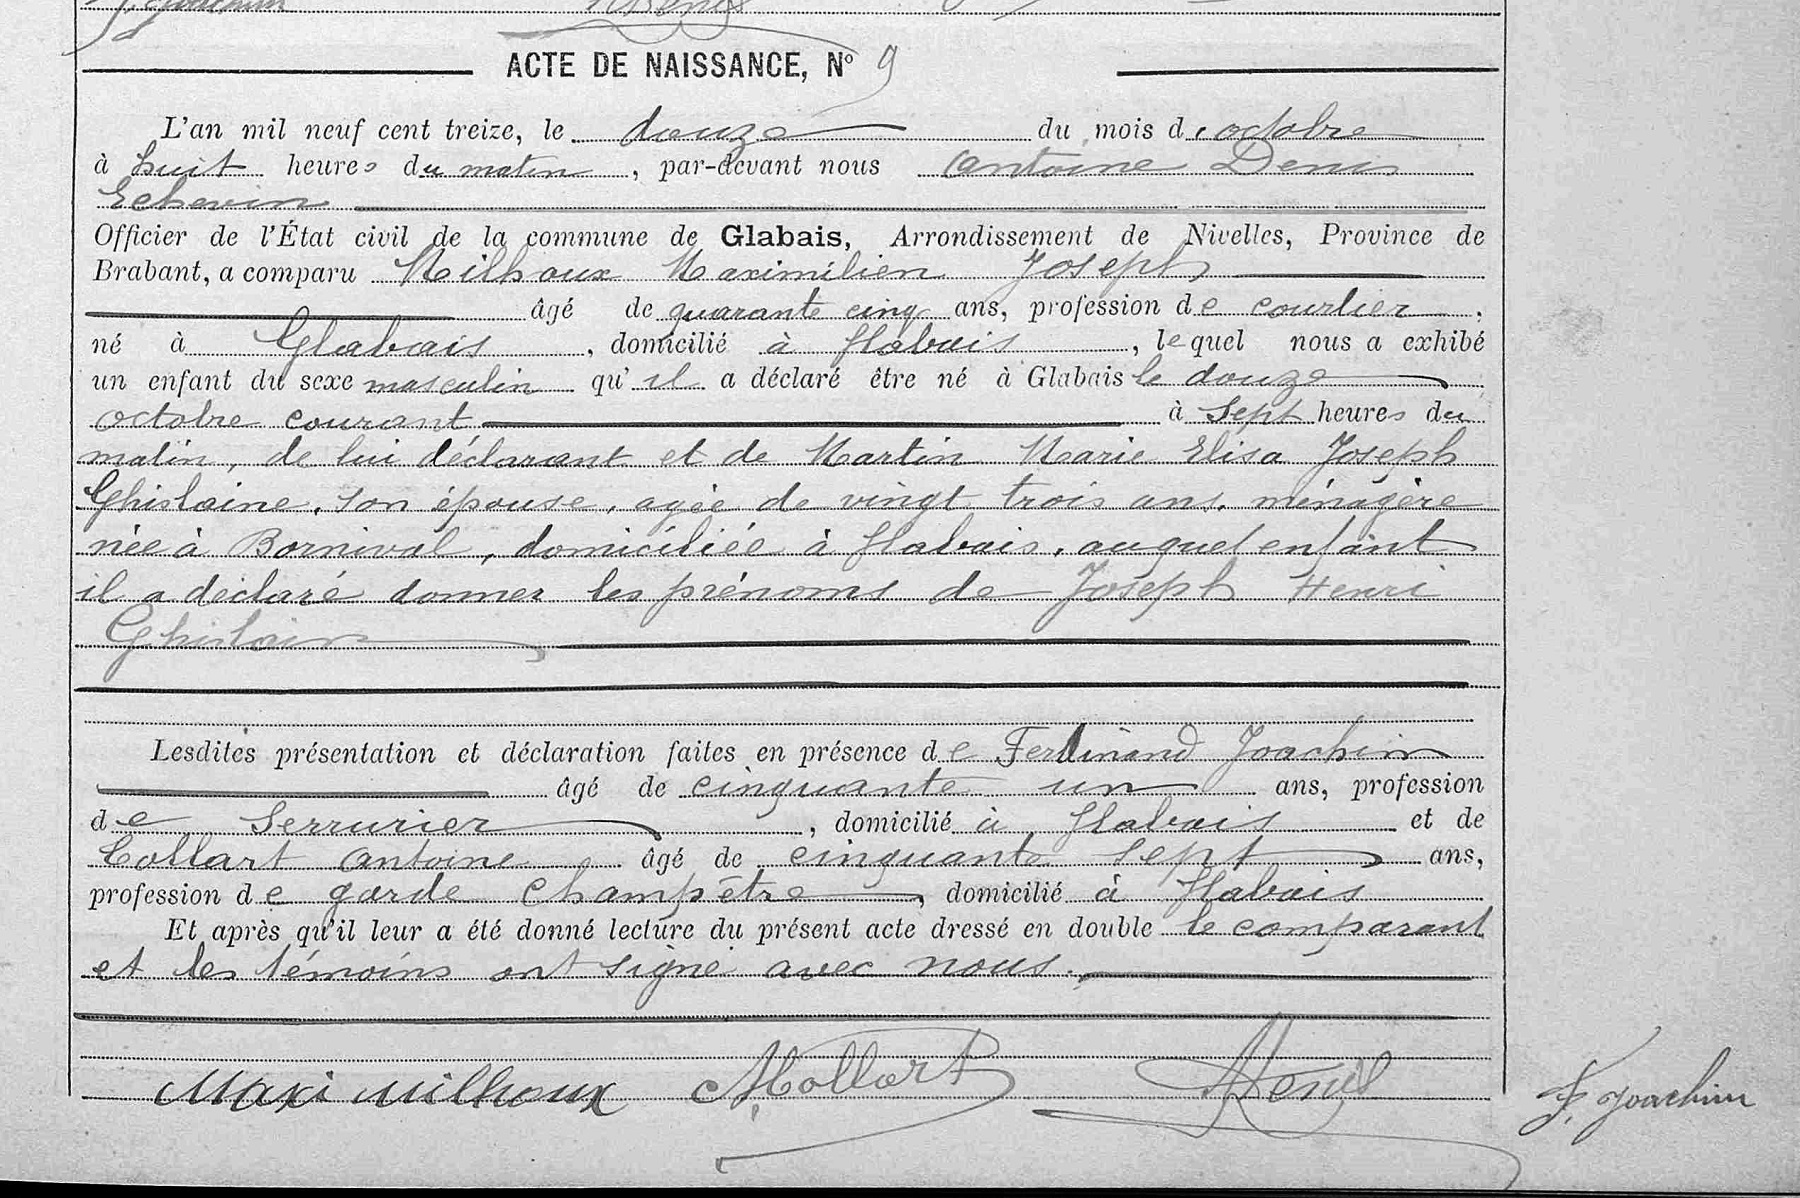 F. Joachim
ADenis
ACTE DE NAISSANCE, N° 9
L'an mil neuf cent treize, le douze du mois d'octobre
à huit heures du matin, par-devant nous Antoine Denis
Echevin
Officier de l'État civil de la commune de Glabais, Arrondissement de Nivelles, Province de
Brabant, a comparu Milhoux Maximilien Joseph
âgé de quarante cinq ans, profession de courtier,
né à Glabais, domicilié à Glabais, lequel nous a exhibé
un enfant du sexe masculin qu'il a déclaré être né à Glabais le douze
octobre courant à sept heures du
matin, de lui déclarant et de Martin Marie Elisa Joseph
Ghislaine, son épouse, agée de vingt trois ans, ménagère
née à Bornival, domiciliée à Glabais, auquel enfant
il a déclaré donner les prénoms de Joseph Henri
Ghislain
Lesdites présentation et déclaration faites en présence de Ferdinand Joachim
âgé de cinquante un ans, profession
de Serrurier, domicilié à Glabais et de
Collart Antoine âgé de cinquante sept ans,
profession de garde champêtre, domicilié à Glabais
Et après qu'il leur a été donné lecture du présent acte dressé en double le comparant
et les témoins ont signé avec nous.
Maxi Milhoux ACollart ADenis F. Joachim